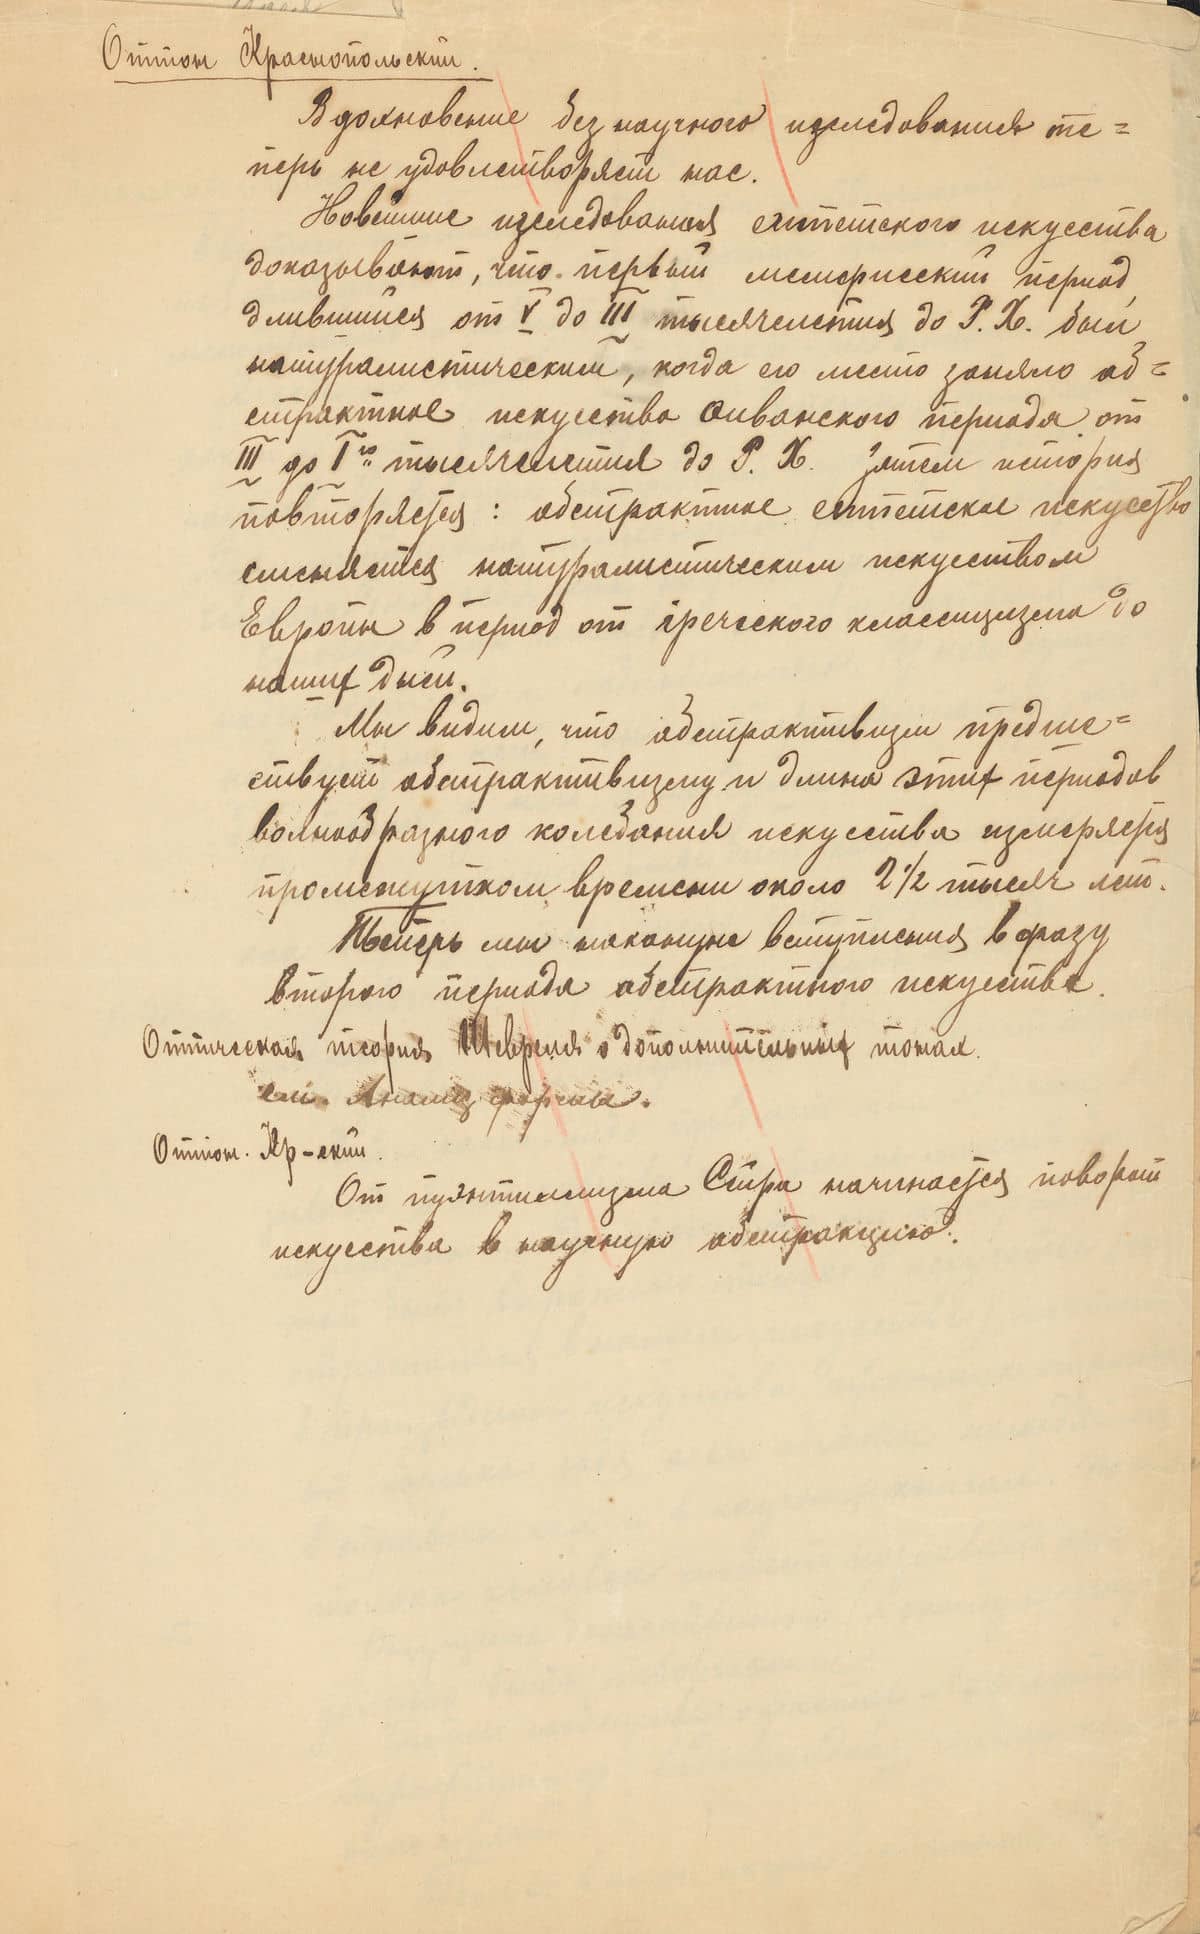 Оттон Краснопольский.
Вдохновение без научного изследования те=
перь не удовлетворяет нас.
Новейшие изследования египетского искусства
доказывают, что первый мемфисский период,
длившийся от V до III тысячелетия до Р. Х. был
натуралистическим, когда его место заняло аб=
страктное искусство Фиванского периода от
III до I го тысячелетия до Р. Х. Затем история
повторяется: абстрактное египетское искусство
сменяется натуралистическим искусством
Европы в период от греческого классицизма до
наших дней.
Мы видим, что абстрактивизм предше=
ствует абстрактивизму и длина этих периодов
волнообразного колебания искусства измеряется
промежутком времени около 2 1/2 тысяч лет.
Теперь мы накануне вступления в фазу
второго периода абстрактного искусства.
Оптическая теория Шевреля о дополнительных тонах.
см. Анализ формы.
Оттон. Кр-ский.
От пуянтилизма Сёра начинается поворот
искусства в научную абстракцию.